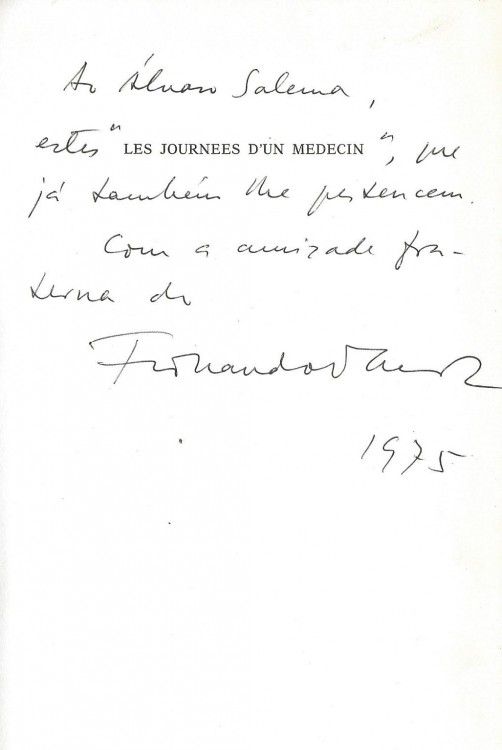 Ao Álvaro Salema,
estes "LES JOURNEES D'UN MEDECIN", que
já também lhe pertencem.
Com a amizade fra-
terna do
Fernando Namora
1975